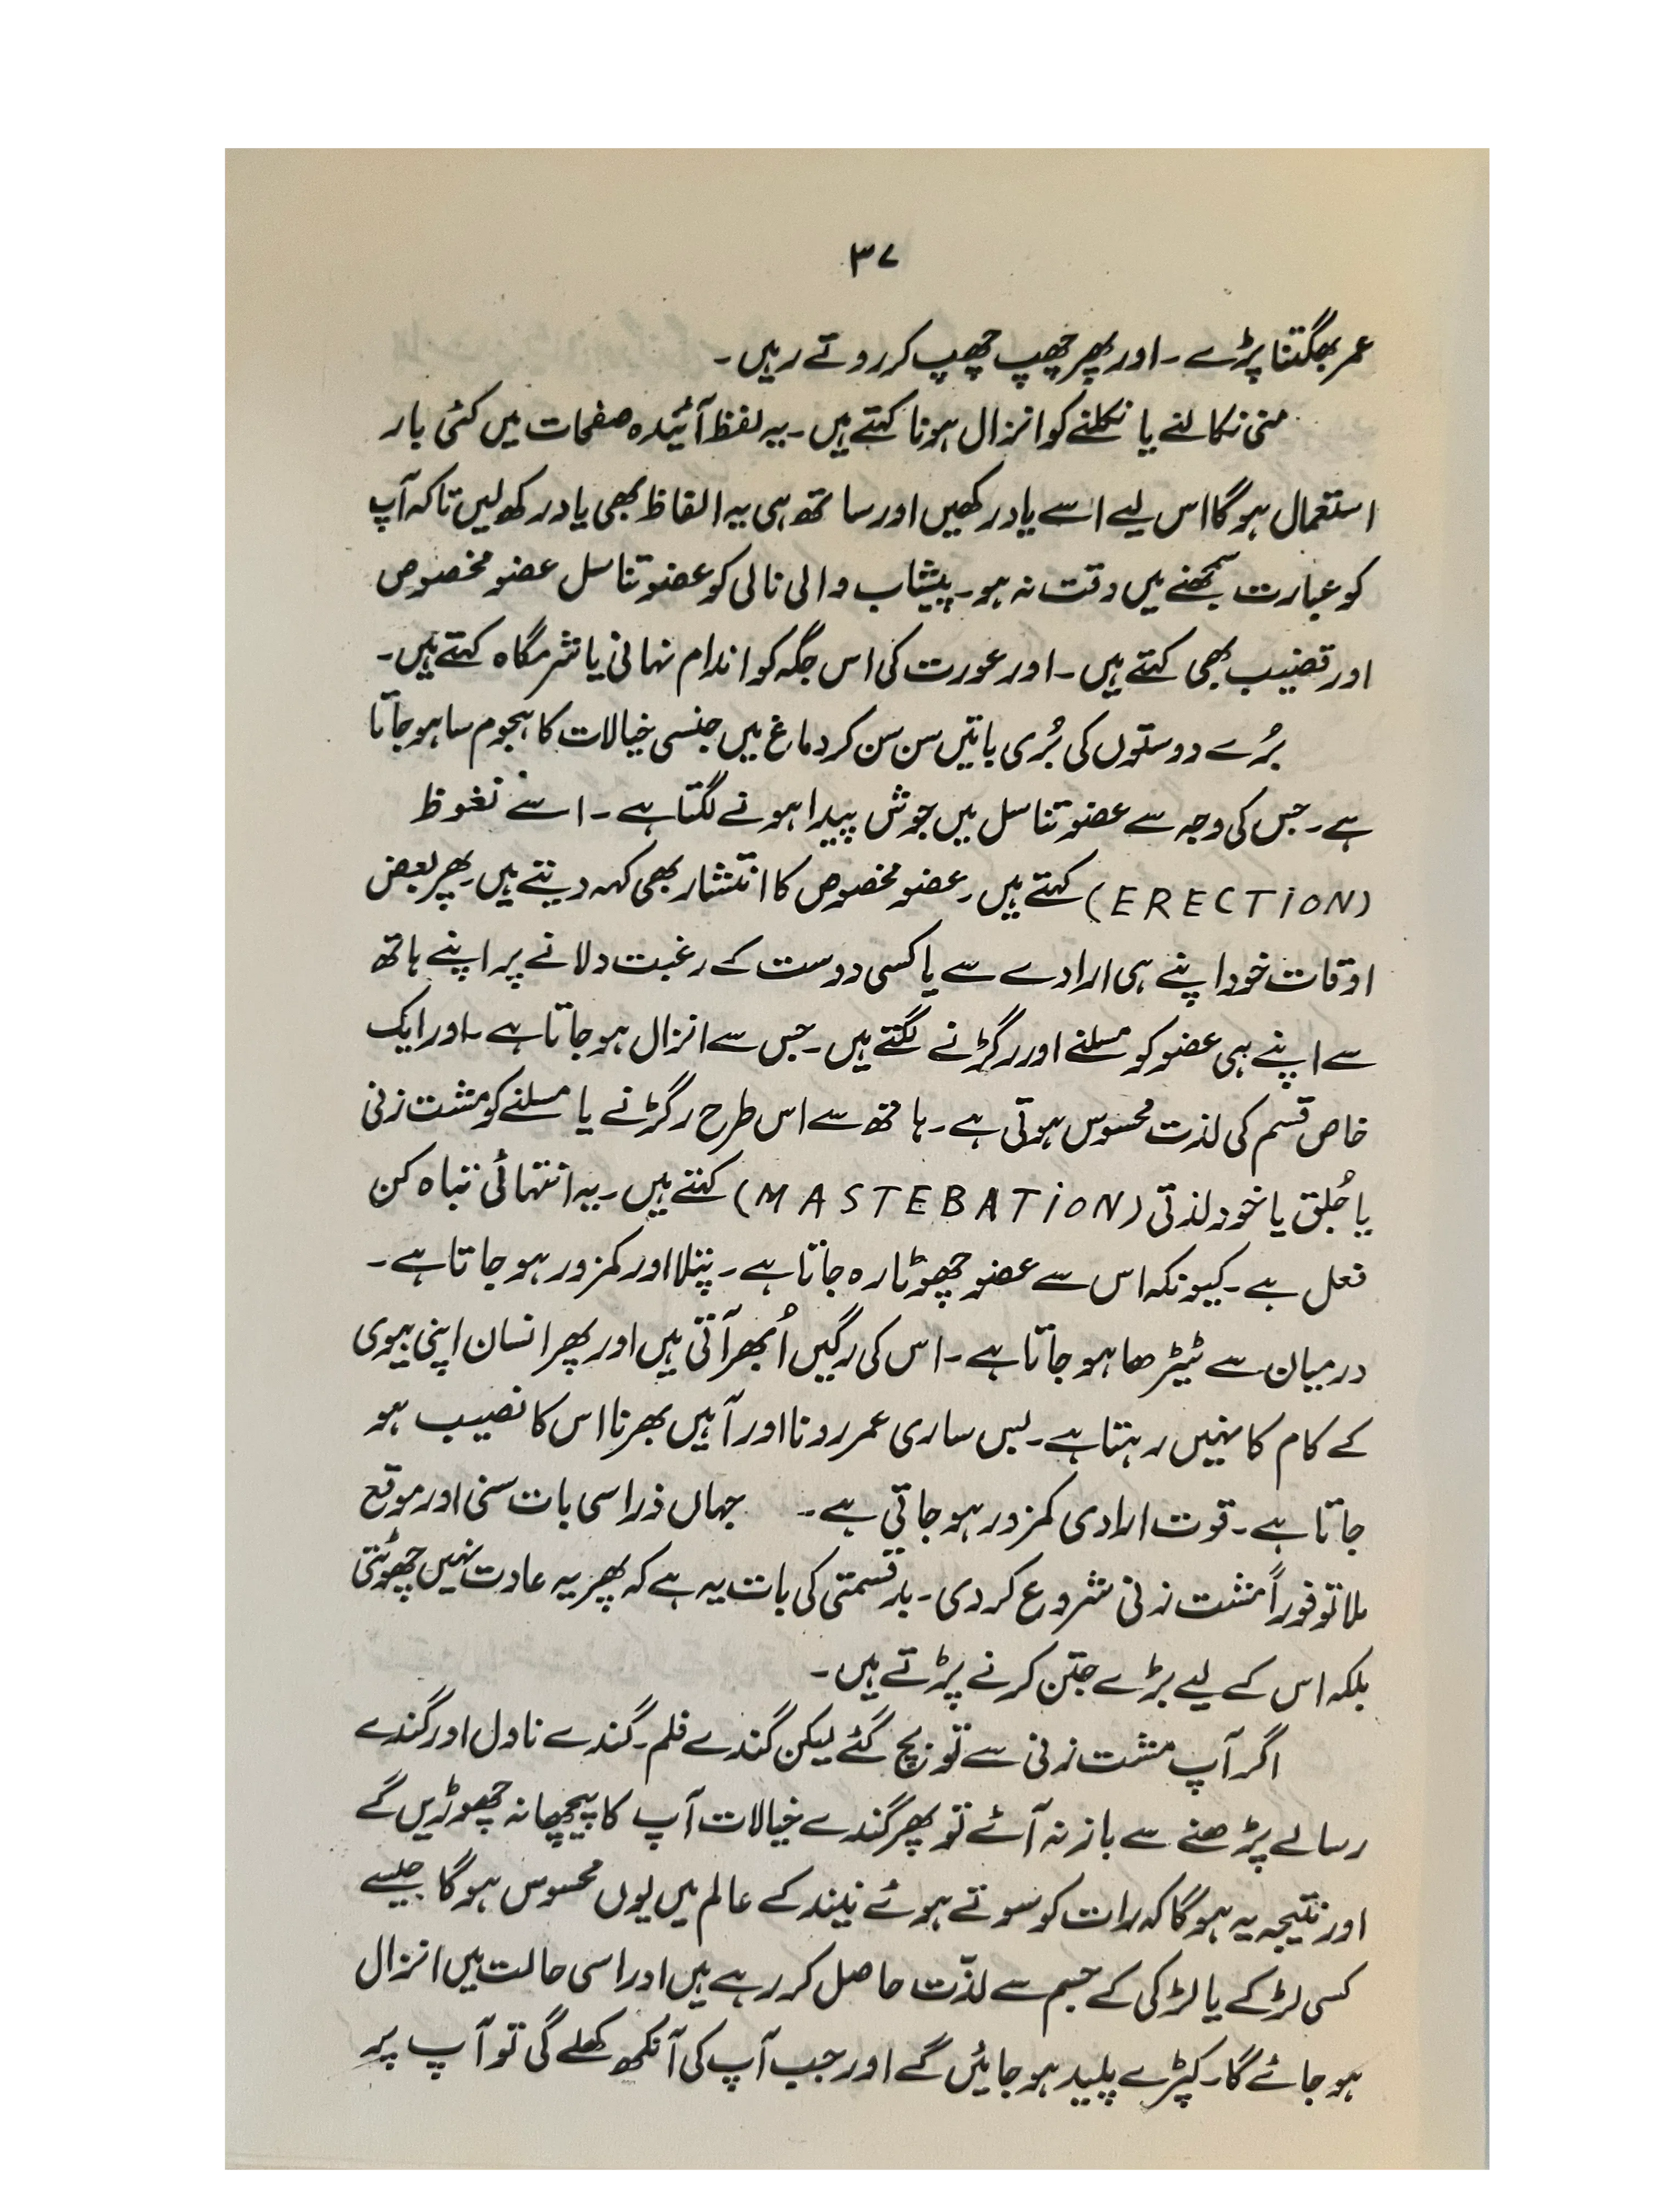 ۳۷
عمر بھگتنا پڑے۔ اور پھر چھپ چھپ کر روتے رہیں۔
منی نکالنے یا نکلنے کو انزال ہونا کہتے ہیں۔ یہ لفظ آئیندہ صفحات میں کئی بار
استعمال ہو گا اس لیے اسے یاد رکھیں اور ساتھ ہی یہ الفاظ بھی یاد رکھ لیں تاکہ آپ
کو عبارت سمجھنے میں دقت نہ ہو۔ پیشاب والی نالی کو عضو تناسل عضو مخصوص
اور قضیب بھی کہتے ہیں۔ اور عورت کی اس جگہ کو اندام نہانی یا شرمگاہ کہتے ہیں۔
بُرے دوستوں کی بُری باتیں سن سن کر دماغ میں جنسی خیالات کا ہجوم سا ہو جاتا
ہے۔ جس کی وجہ سے عضو تناسل میں جوش پیدا ہونے لگتا ہے۔ اسے نغوظ
(ERECTiON) کہتے ہیں۔ عضو مخصوص کا انتشار بھی کہہ دیتے ہیں۔ پھر بعض
اوقات خود اپنے ہی ارادے سے یا کسی دوست کے رغبت دلانے پر اپنے ہاتھ
سے اپنے ہی عضو کو مسلنے اور رگڑنے لگتے ہیں۔ جس سے انزال ہو جاتا ہے۔ اور ایک
خاص قسم کی لذت محسوس ہوتی ہے۔ ہاتھ سے اس طرح رگڑنے یا مسلنے کو مشت زنی
یا جُلق یا خود لذتی (MASTEBATiON) کہتے ہیں۔ یہ انتہائی تباہ کن
فعل ہے۔ کیونکہ اس سے عضو چھوٹا رہ جاتا ہے۔ پتلا اور کمزور ہو جاتا ہے۔
درمیان سے ٹیڑھا ہو جاتا ہے۔ اس کی رگیں اُبھر آتی ہیں اور پھر انسان اپنی بیوی
کے کام کا نہیں رہتا ہے۔ بس ساری عمر رونا اور آہیں بھرنا اس کا نصیب ہو
جاتا ہے۔ قوت ارادی کمزور ہو جاتی ہے۔ جہاں ذرا سی بات سنی اور موقع
ملا تو فوراً مشت زنی شروع کر دی۔ بدقسمتی کی بات یہ ہے کہ پھر یہ عادت نہیں چھوٹتی
بلکہ اس کے لیے بڑے جتن کرنے پڑتے ہیں۔
اگر آپ مشت زنی سے تو بچ گئے لیکن گندے فلم۔ گندے ناول اور گندے
رسالے پڑھنے سے باز نہ آئے تو پھر گندے خیالات آپ کا پیچھا نہ چھوڑیں گے
اور نتیجہ یہ ہو گا کہ رات کو سوتے ہوئے نیند کے عالم میں یوں محسوس ہو گا جیسے
کسی لڑکے یا لڑکی کے جسم سے لذّت حاصل کر رہے ہیں اور اسی حالت میں انزال
ہو جائے گا۔ کپڑے پلید ہو جائیں گے اور جب آپ کی آنکھ کھلے گی تو آپ پر